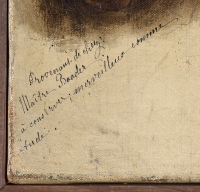 Provenant de chez
Maître Baader
à conserver; merveilleux comme
étude.